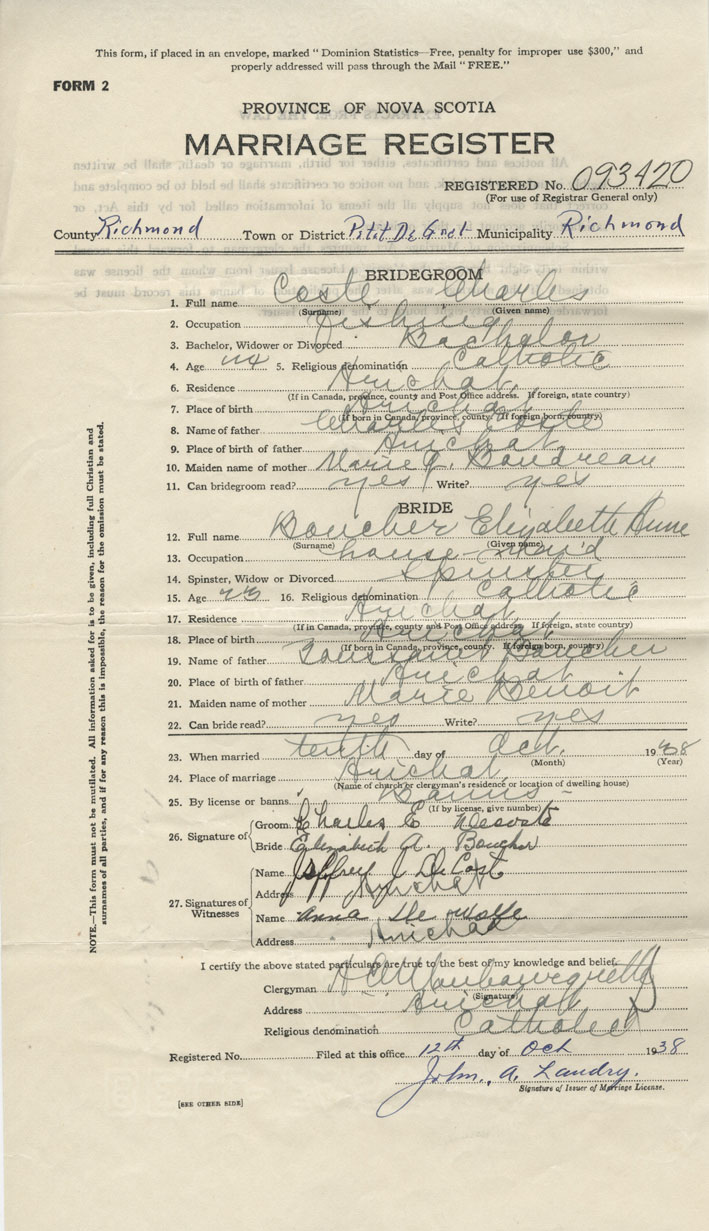 This form, if placed in an envelope, marked " Dominion Statistics—Free, penalty for improper use $300," and
properly addressed will pass through the Mail " FREE."
FORM 2
PROVINCE OF NOVA SCOTIA
MARRIAGE REGISTER
REGISTERED No. 093420
(For use of Registrar General only)
County Richmond Town or District Petit De Grat Municipality Richmond
BRIDEGROOM
1. Full name Coste Charles
(Surname) (Given name)
2. Occupation Fishing
3. Bachelor, Widower or Divorced Bachelor
4. Age 5. Religious denomination Catholic
6. Residence Arichat
(If in Canada, province, county and Post Office address. If foreign, state country)
7. Place of birth Arichat
(If born in Canada, province, county. If foreign born, country)
8. Name of father Charles Coste
9. Place of birth of father Arichat
10. Maiden name of mother Marie Boudreau
11. Can bridegroom read? yes Write? yes
BRIDE
12. Full name Boucher Elizabeth Anne
(Surname) (Given name)
13. Occupation house-maid
14. Spinster, Widow or Divorced Spinster
15. Age 23 16. Religious denomination Catholic
17. Residence Arichat
(If in Canada, province, county and Post Office address. If foreign, state country)
18. Place of birth Arichat
(If born in Canada, province, county. If foreign born, country)
19. Name of father Toussaint Boucher
20. Place of birth of father Arichat
21. Maiden name of mother Marie Benoit
22. Can bride read? yes Write? yes
23. When married tenth day of Oct. 1938
(Month) (Year)
24. Place of marriage Arichat
(Name of church or clergyman's residence or location of dwelling house)
25. By license or banns Banns
(If by license, give number)
26. Signature of Groom Charles E Decoste
Bride Elizabeth A. Boucher
27. Signatures of Witnesses Name Jeffrey J DeCost
Address Arichat
Name Anna De Wolfe
Address Arichat
I certify the above stated particulars are true to the best of my knowledge and belief.
Clergyman
(Signature)
Address Arichat
Religious denomination Catholic
Registered No. Filed at this office 12th day of Oct 1938
John. A. Landry.
Signature of Issuer of Marriage License.
[SEE OTHER SIDE]
NOTE.—This form must not be mutilated. All information asked for is to be given, including full Christian and
surnames of all parties, and if for any reason this is impossible, the reason for the omission must be stated.